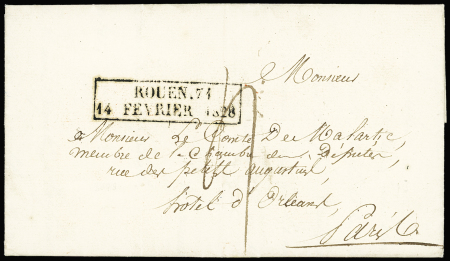 Monsieur
ROUEN.74
14 FEVRIER 1828
a Monsieur Le Comte De Malartic,
membre de la Chambre des Députés,
rue des petits augustins,
hôtel d'Orleans,
Paris